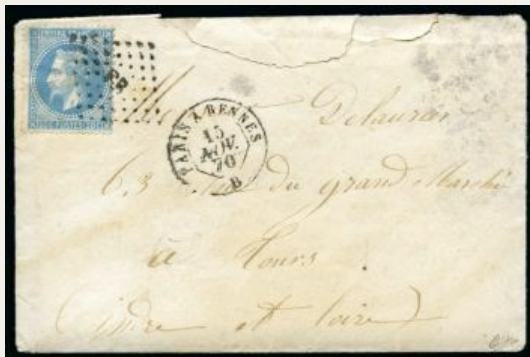 PR
PARIS A RENNES
15
NOV.
70
B
Delaurier
63 rue du grand Marché
à Tours
(indre et loire)